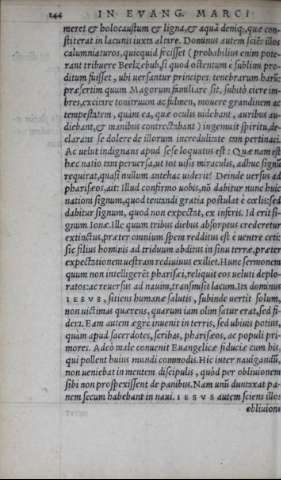 244 IN EVANG. MARCI
meret & holocaustum & ligna, & aquā deniq;, quæ con-
stiterat in lacunis iuxta altare. Dominus autem sciēs illos
calumniaturos, quicquid fecisset (probabilius enim pote-
rant tribuere Beelzebub, si quod ostentum è sublimi pro-
ditum fuisset, ubi uersantur principes tenebrarum harū:
præsertim quum Magorum familiare sit, subitò ciere im-
bres, exciere tonitruum ac fulmen, mouere grandinem ac
tempestatem, quàm ea, quæ oculis uidebant, auribus au-
diebant, & manibus contrectabant) ingemuit spiritu, de-
clarans se dolere de illorum incredulitate tam pertinaci.
Ac uelut indignans apud sese loquutus est: Quæ nam est
hæc natio tam peruersa, ut tot uisis miraculis, adhuc signū
requirat, quasi nullum antehac uiderit? Deinde uersus ad
pharisæos, ait: Illud confirmo uobis, nō dabitur nunc huic
nationi signum, quod tentandi gratia postulat è cœlis: sed
dabitur signum, quod non expectāt, ex inferis. Id erit si-
gnum Ionæ. Ille quum tribus diebus absorptus crederetur
extinctus, præter omnium spem redditus est è uentre ceti:
sic filius hominis ad triduum abditus in sinu terræ, præter
expectationem uestram rediuiuus exiliet. Hunc sermonem
quum non intelligerēt pharisæi, reliquit eos ueluti deplo-
ratos: ac reuersus ad nauim, transmisit lacum. Ita dominus
IESVS, sitiens humanæ salutis, subinde uertit solum,
non uictimas quærens, quarum iam olim satur erat, sed fi-
dem. Eam autem ægre inuenit in terris, sed ubiuis potius,
quàm apud sacerdotes, scribas, pharisæos, ac populi pri-
mores. Adeò male conuenit Euangelicæ fiduciæ cum his,
qui pollent huius mundi commodis. Hic inter nauigandū,
non ueniebat in mentem discipulis, quòd per obliuionem
sibi non prospexissent de panibus. Nam unū duntaxat pa-
nem secum habebant in naui. IESVS autem sciens illos
obliuione